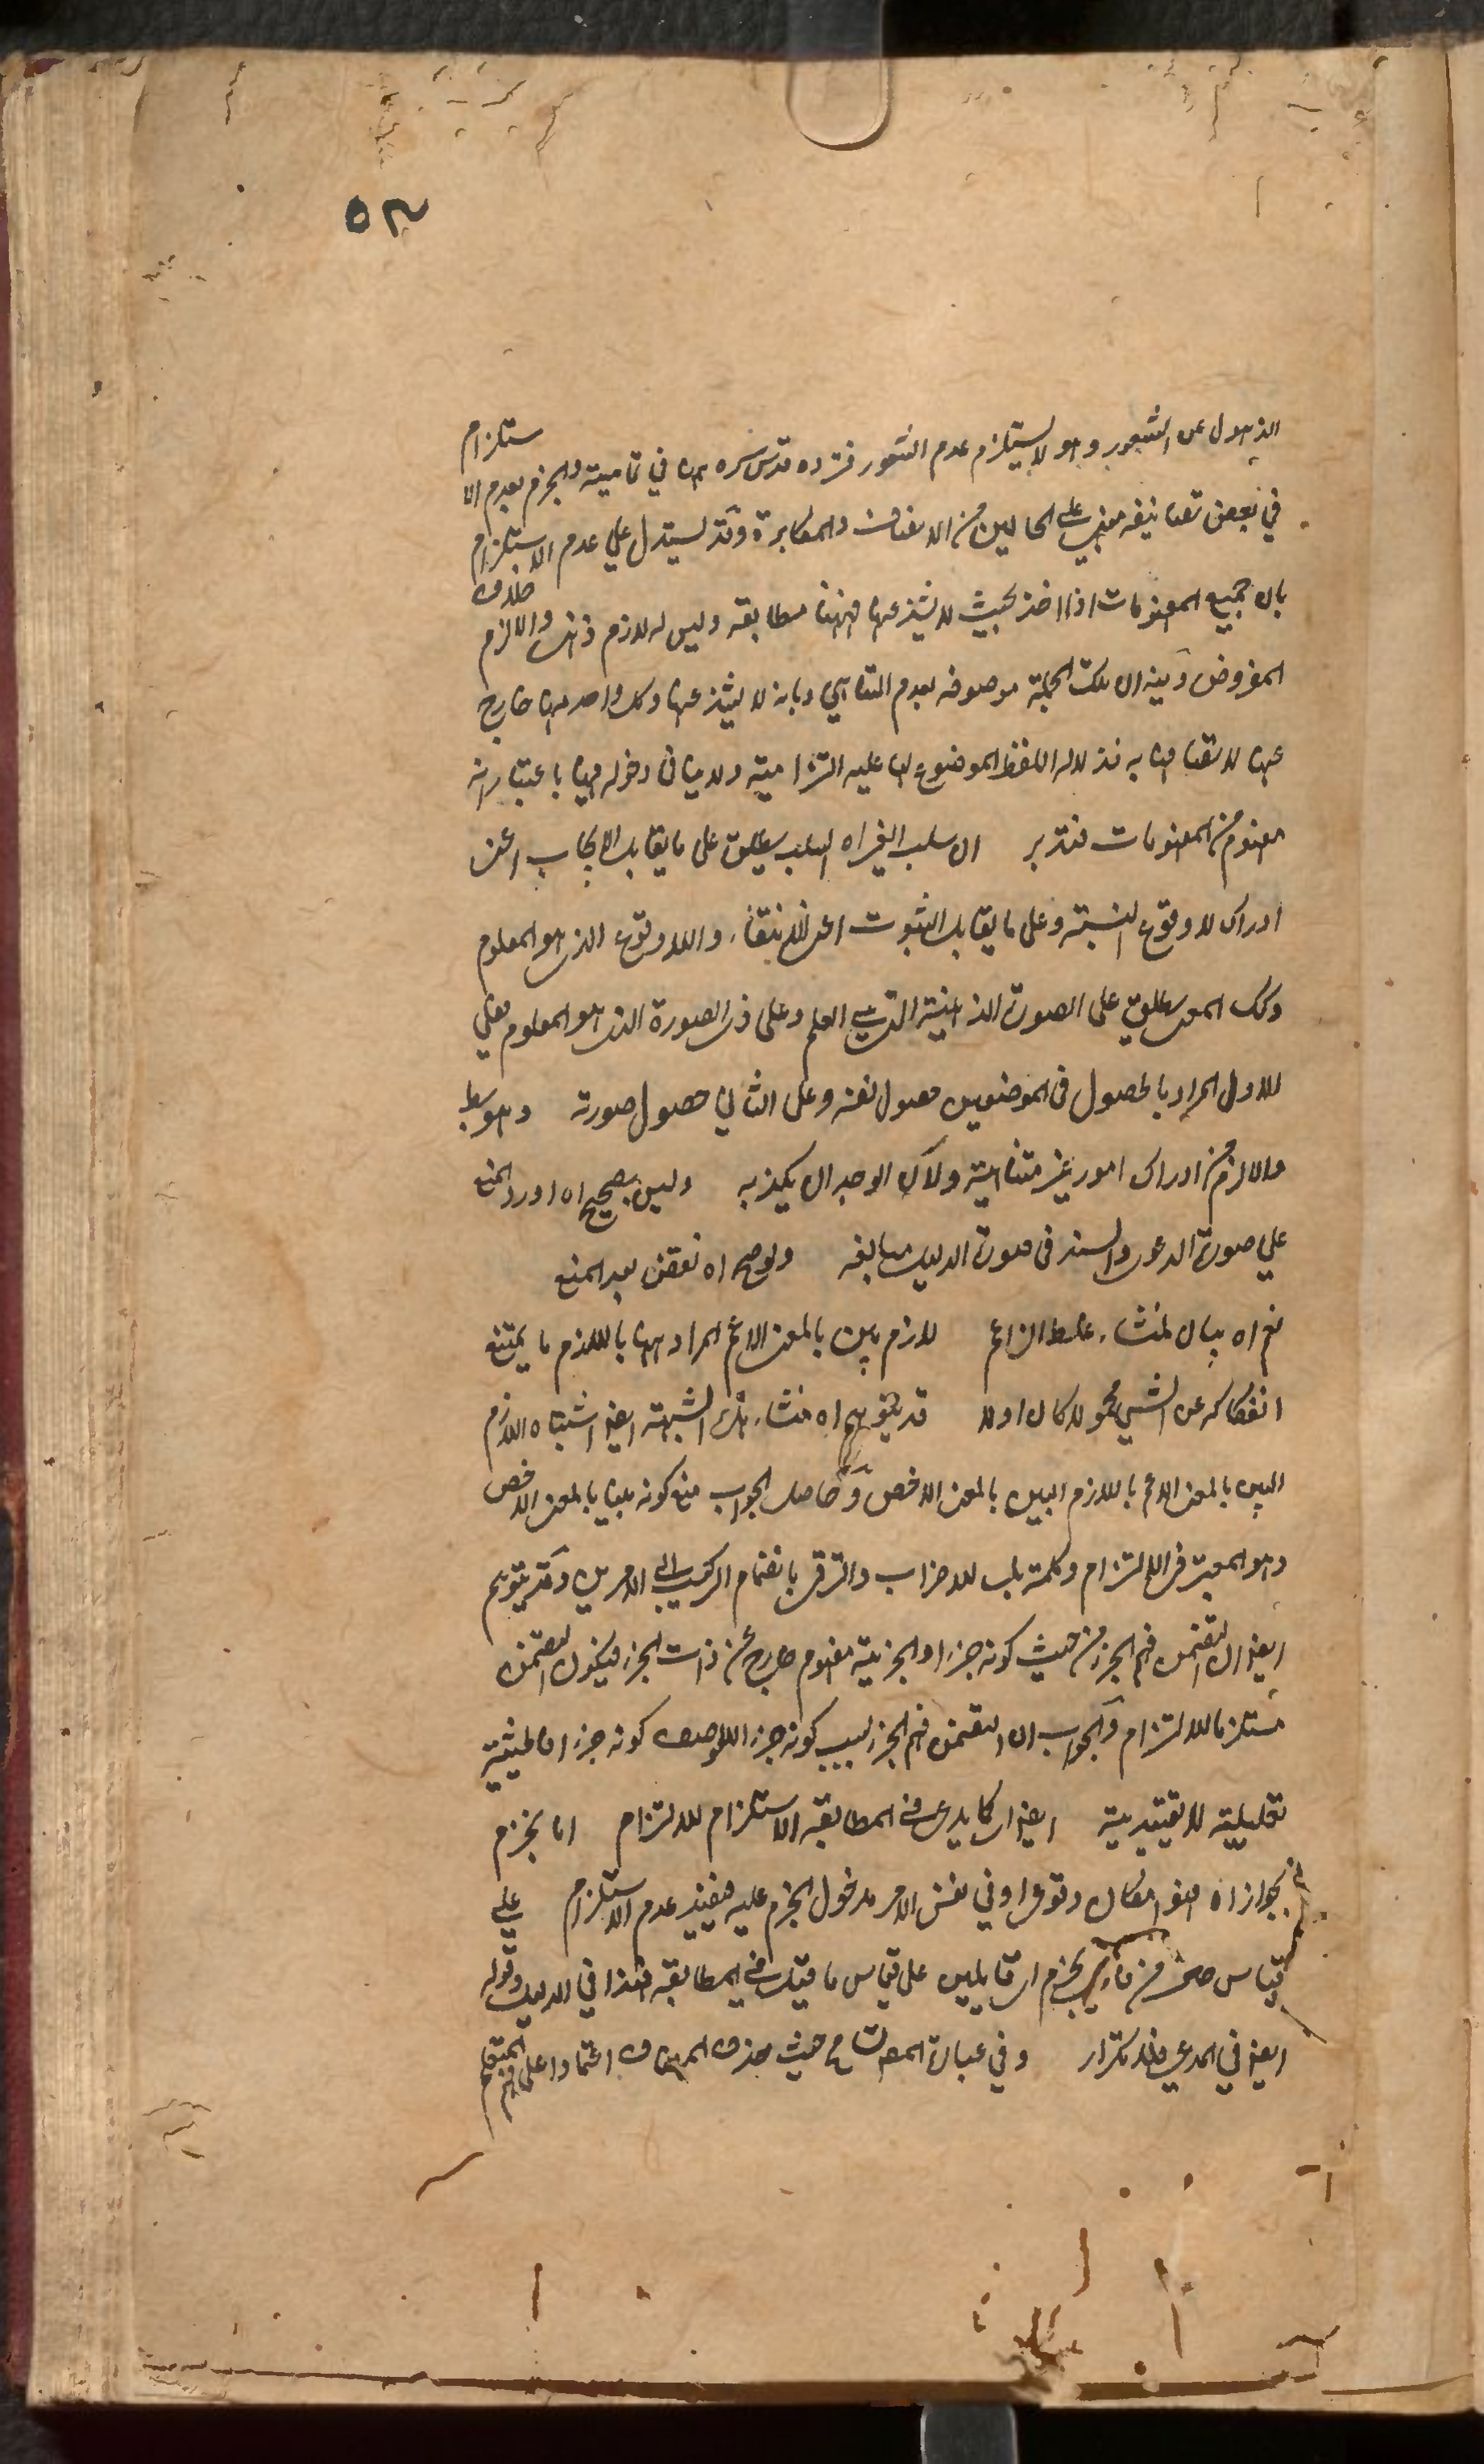 ٥٣
الذهول عن الشعور وهو لا يستلزم عدم الشعور فتردده قدس سره هنا في تماميته والجزم بعدم الاستلزام
في بعض تصانيفه مبني على الحالين من الانصاف والمكابرة وقد يستدل على عدم الاستلزام
بان جميع المفهومات اذا اخذ بحيث لا يشذ عنها فههنا مطابقة وليس له لازم ذهني والا لزم خلاف
المفروض وفيه ان تلك الجملة موصوفة بعدم التناهي وبانه لا يشذ عنها وكل واحد منها خارج
عنها لاتصافها به فدلالة اللفظ الموضوع لها عليه التزامية ولا ينافي دخوله فيها باعتبار انه
مفهوم من المفهومات فتدبر ان سلب الغير اه السلب يطلق على ما يقابل الايجاب اعني
ادراك لا وقوع النسبة وعلى ما يقابل الثبوت اعني الانتفاء واللاوقوع الذي هو المعلوم
وكك المعنى يطلق على الصورة الذهنية التي هي العلم وعلى ذي الصورة الذي هو المعلوم فعلي
الاول المراد بالحصول في الموضعين حصول نفسه وعلى الثاني حصول صورته وهو بط
والا لزم من ادراك امور غير متناهية ولان الوجدان يكذبه وليس بصحيح اه اورد المنع
على صورة الدعوى والسند في صورة الدليل مبالغة ولوصح اه نقض بعد المنع
نعم اه بيان لمنشاء غلط الزاعم لازم بين بالمعنى الاعم المراد ههنا باللازم ما يمتنع
انفكاكه عن الشيء محمولا كان اولا قد يتوهم اه منشاء هذه الشبهة ايضا اشتباه اللازم
البين بالمعنى الاعم باللازم البين بالمعنى الاخص وحاصل الجواب منع كونه بينا بالمعنى الاخص
وهو المعتبر في الالتزام وكلمة بل للاضراب والترقي بانضمام التركيب الى الامرين وقد يتوهم
ايضا ان التضمن فهم الجزء من حيث كونه جزءا والجزئية مفهوم خارج عن ذات الجزء فيكون التضمن
مستلزما للالتزام والجواب ان التضمن فهم الجزء بسبب كونه جزءا لا بوصف كونه جزءا فالحيثية
تعليلية لا تقييدية ايضا اي كما يدعى في المطابقة الاستلزام للالتزام انا نجزم
بجواز اه هو امكان وقوعي او في نفس الامر مدخول الجزم عليه فيفيد عدم الاستلزام على
قياس على قياس ما قيل في المطابقة هذا في الدليل وقوله
ايضا في المدعى فلا تكرار وفي عبارة المصنف حيث حذف المضاف اعتمادا على فهم المتعلم